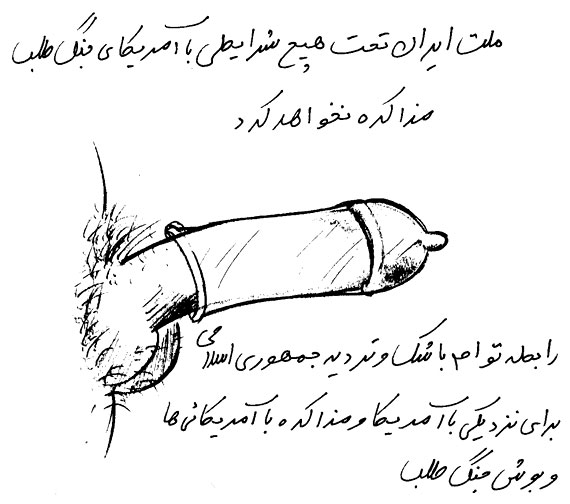 ملت ایران تحت هیچ شرایطی با آمریکای جنگ طلب
مذاکره نخواهد کرد
رابطه توام با شک و تردید جمهوری اسلامی
برای نزدیکی با آمریکا و مذاکره با آمریکائی ها
و بوش جنگ طلب